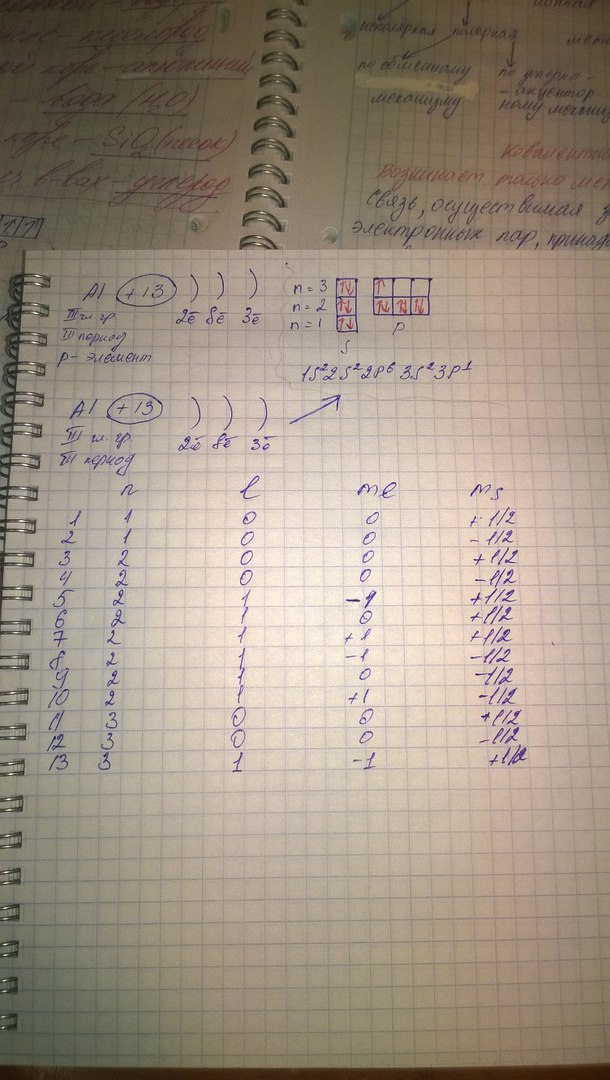 кислород
алюминий
вода (H₂O)
коре - SiO₂ (песок)
в-вах - углерод
неполярная полярная
по обменному
механизму
по донорно-
- акцептор-
ному механиз
Ковалентна
Возникает только ме
связь, осуществимая з
электронных пар, принад
Al +13 ) ) )
III гл. гр. 2ē 8ē 3ē
III период
p - элемент
n = 3 ↑↓ ↑
n = 2 ↑↓ ↑↓ ↑↓ ↑↓
n = 1 ↑↓
S p
1S²2S²2P⁶ 3S²3P¹
Al +13 ) ) )
III гл. гр. 2ē 8ē 3ē
III период
n l ml Ms
1 1 0 0 +1/2
2 1 0 0 -1/2
3 2 0 0 +1/2
4 2 0 0 -1/2
5 2 1 -1 +1/2
6 2 1 0 +1/2
7 2 1 +1 +1/2
8 2 1 -1 -1/2
9 2 1 0 -1/2
10 2 1 +1 -1/2
11 3 0 0 +1/2
12 3 0 0 -1/2
13 3 1 -1 +1/2